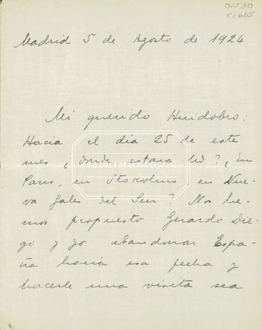 Madrid 5 de Agosto de 1924
Mi querido Huidobro:
Hacia el dia 25 de este
mes ¿donde estará Ud? ¿en
Paris, en Stokolmo en Nue-
va Gales del Sur? Nos he-
mos propuesto Gerardo Die-
go y yo abandonar Espa-
ña hacia esa fecha y
hacerle una visita sea